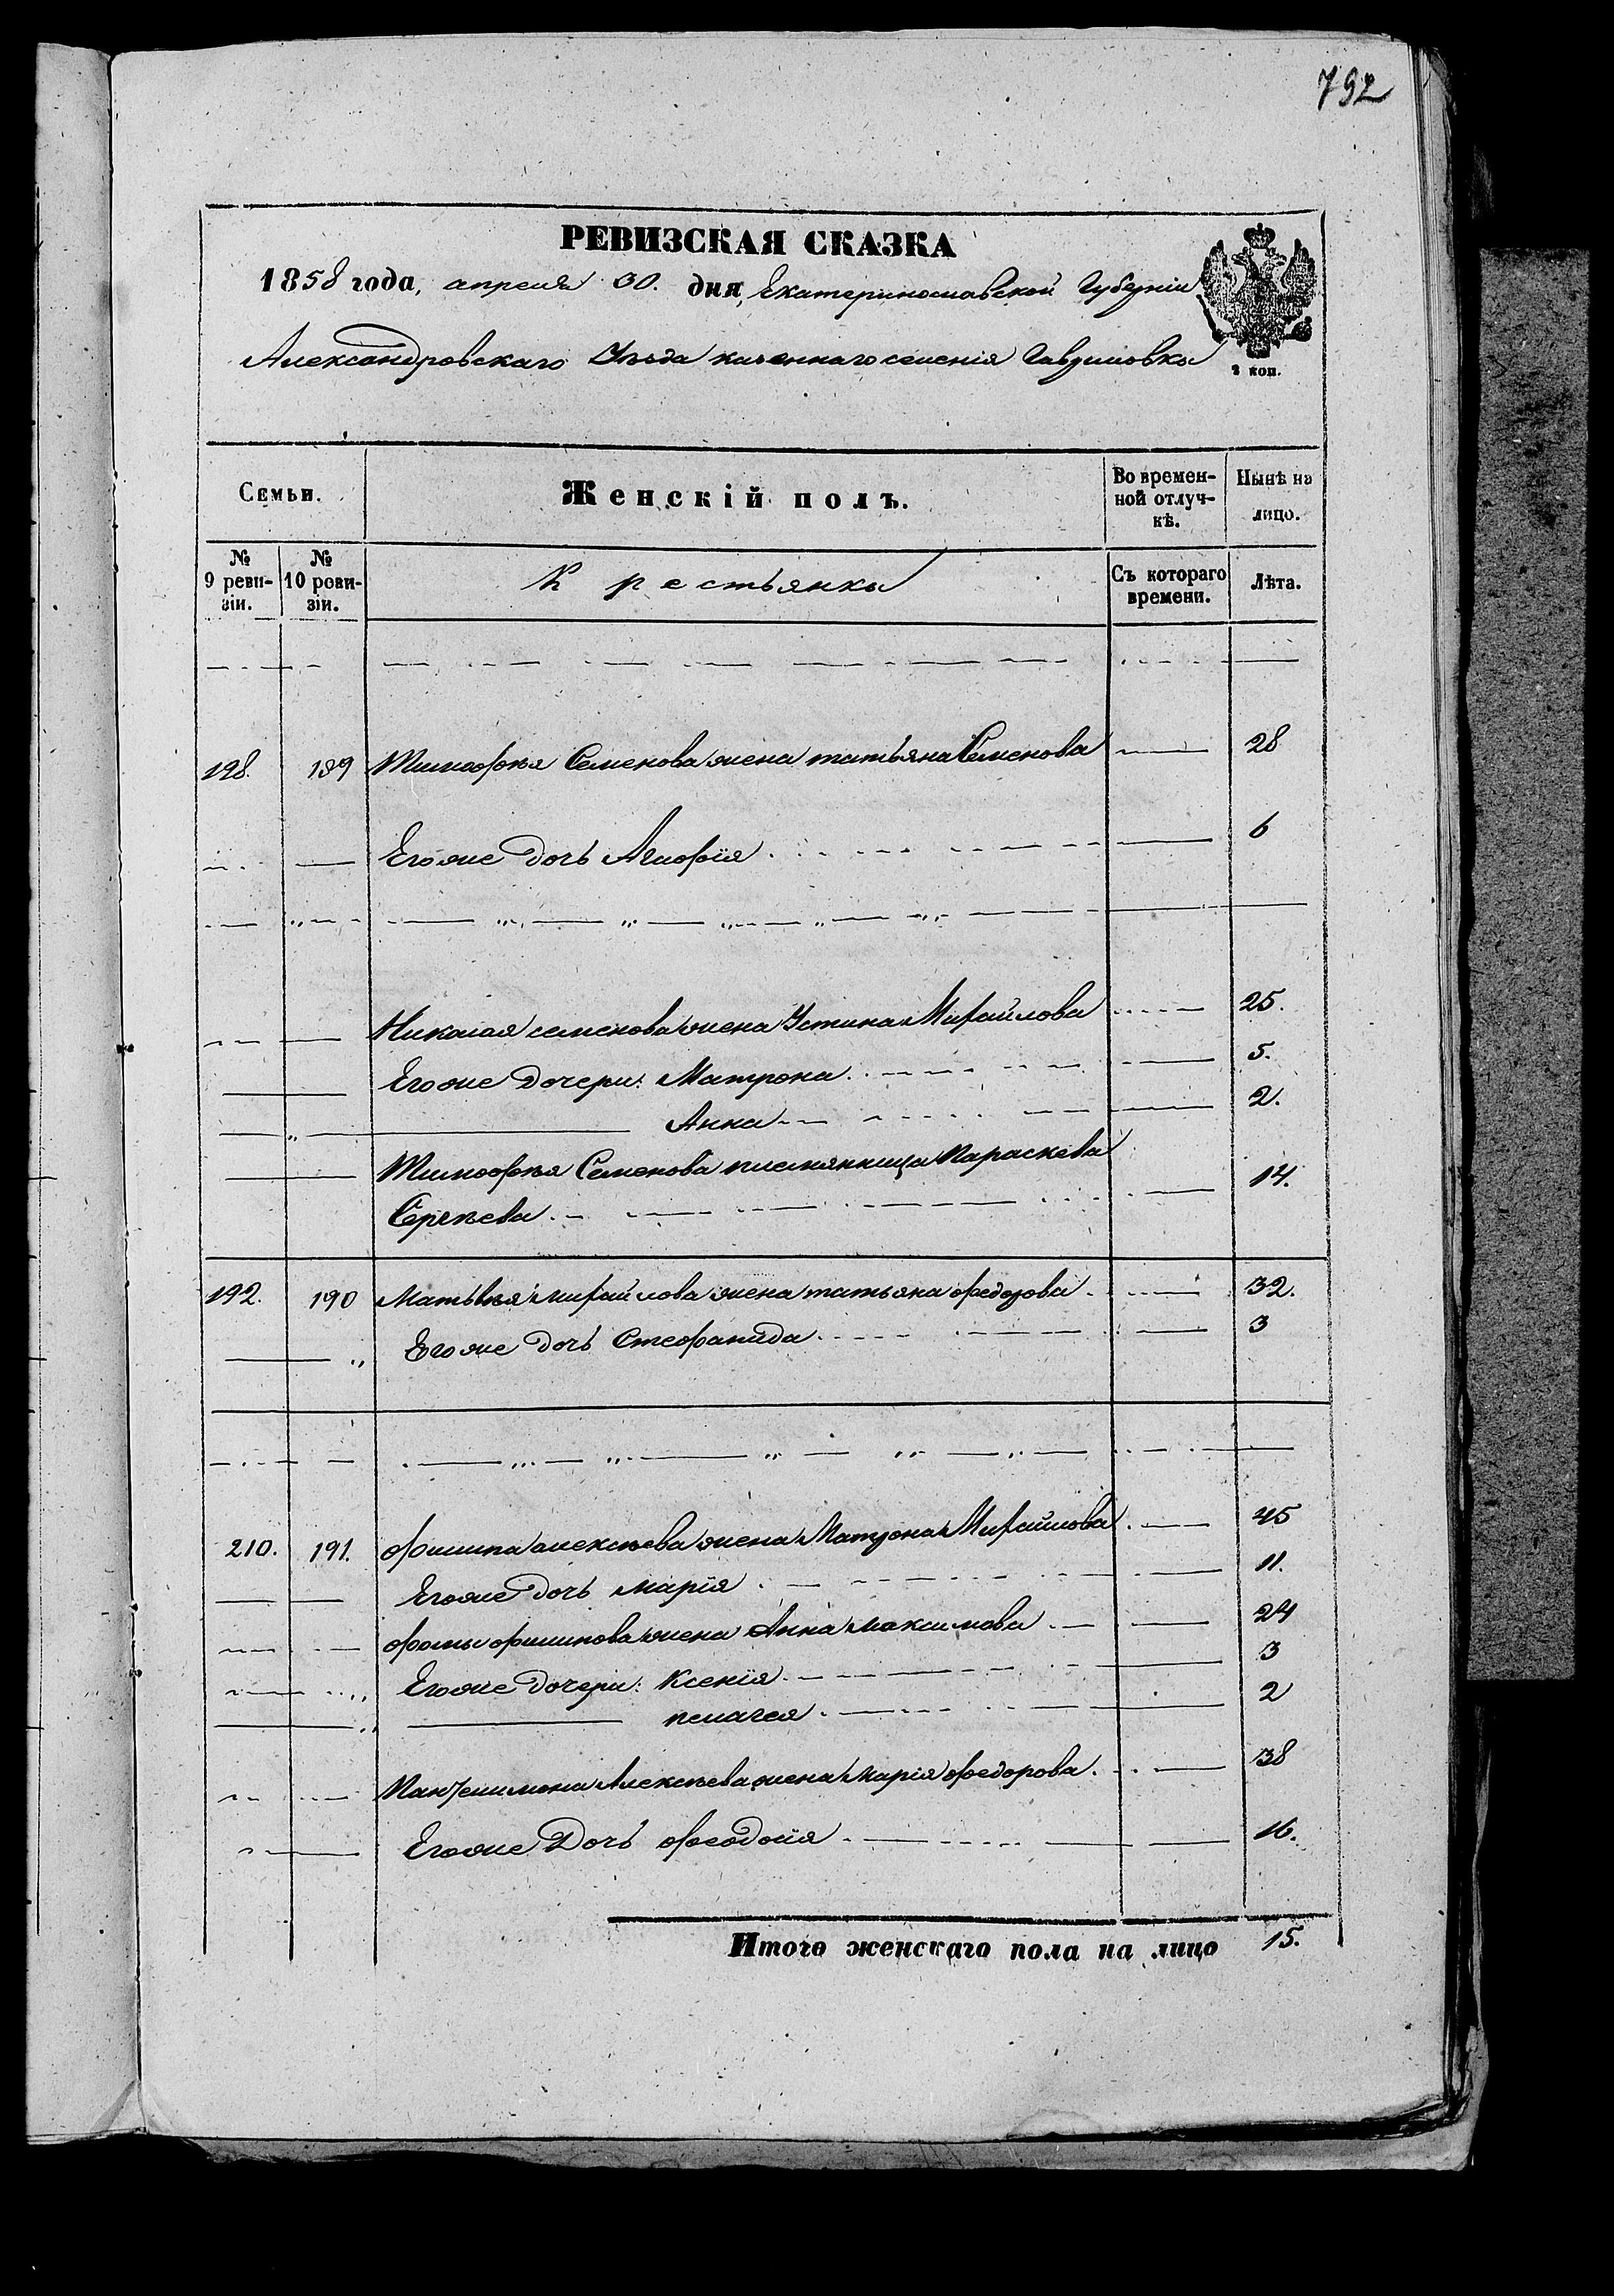 792
РЕВИЗСКАЯ СКАЗКА
1858 года, апреля 30. дня, Екатеринославской Губерніи
Александровскаго Уѣзда казеннаго селенія Гавриловки
2 коп.
Семьи. Женскій полъ. Во времен- Нынѣ на
ной отлуч- лицо.
кѣ.
№ №
9 реви- 10 реви- Крестьянки Съ котораго Лѣта.
зіи. зіи. времени.
198. 189 Тимофѣя Семенова жена татьяна Семенова 28
Егоже дочь Агафія 6
Николая семенова жена Устина Михайлова 25.
Егоже дочери: Матрона 5.
Анна 2.
Тимофѣя Семенова племянница Параскева
Сергѣева 14.
192. 190 Матьвѣя михайлова жена татьяна федорова 32.
Егоже дочь Стефанида 3
210. 191. филипа алексѣева жена Матрона Михайлова 45
Егоже дочь марія 11.
фомы филипова жена Анна максимова 24
Егоже дочери: Ксенія 3
пелагея 2
Алексѣева жена марія федорова 38
Егоже Дочь феодосія 16.
Итого женскаго пола на лицо 15.